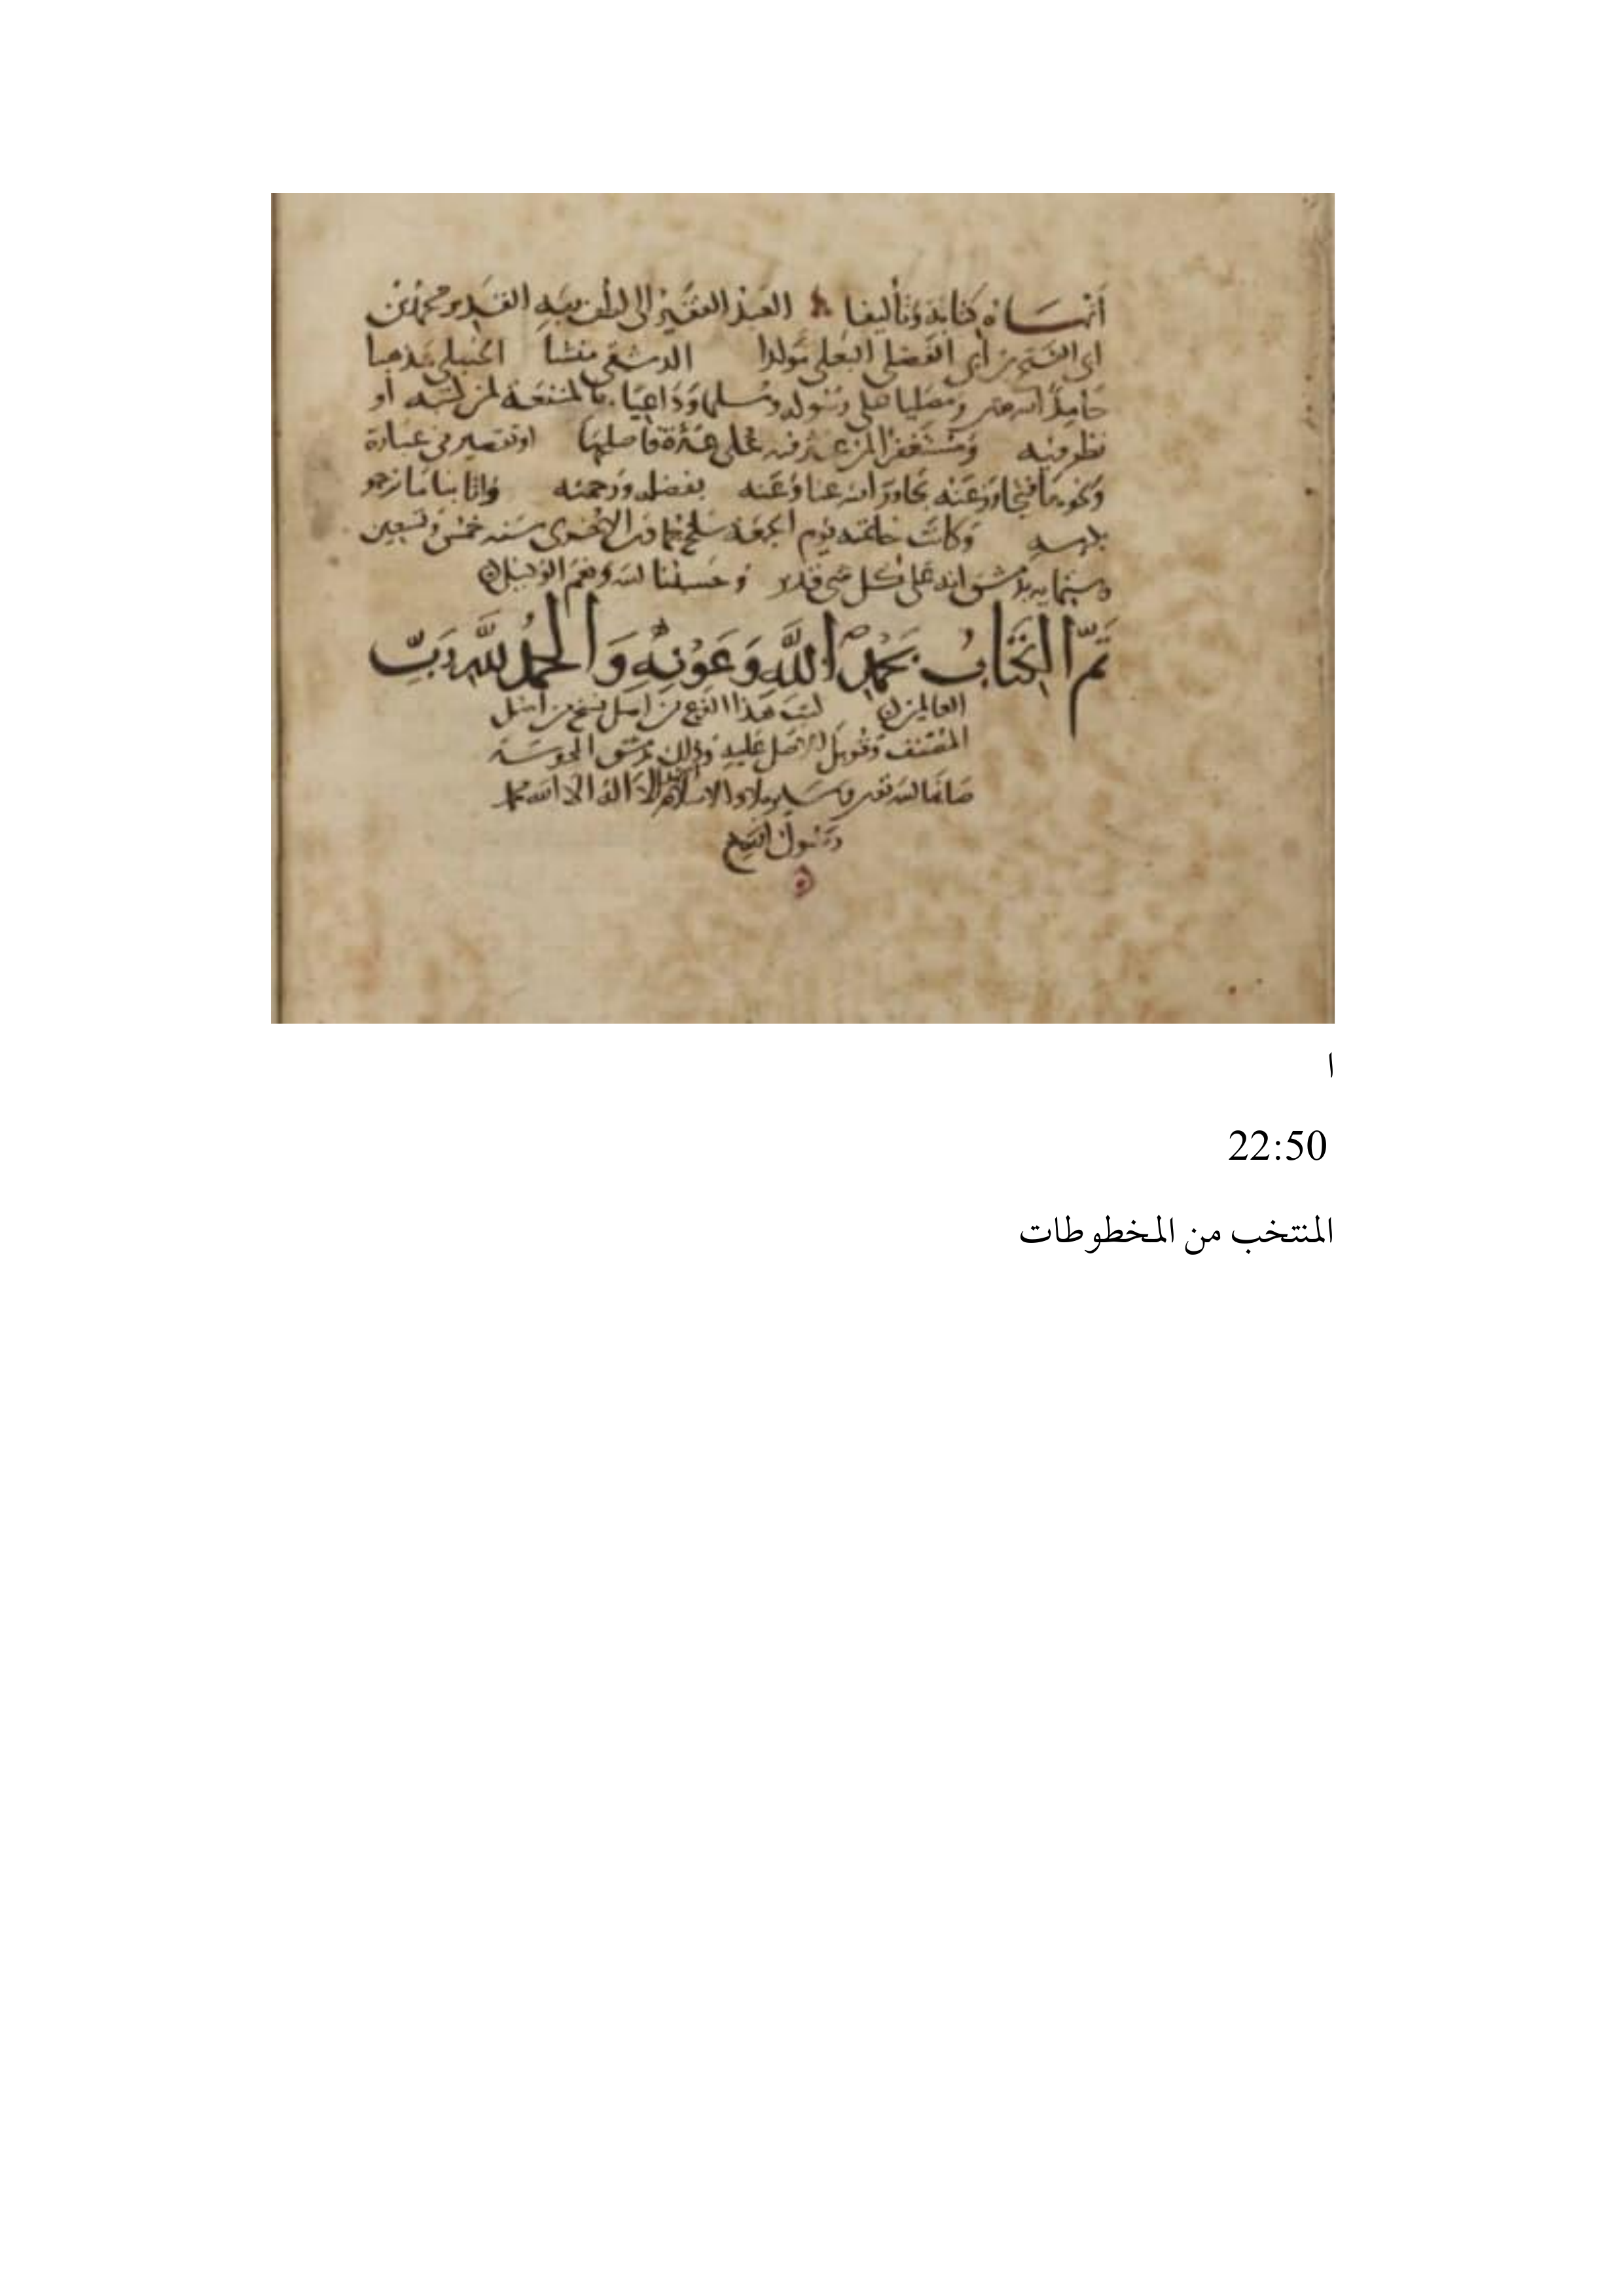 أنهاه كتابة وتأليفا العبد الفقير إلى لطف ربه القدير محمد بن
ابى الفتح بن أبي الفضل البعلى مولدا الدمشقى منشأ الحنبلى مذهبا
حامدا الله ومصليا على رسوله ومسلما وداعيا بالمنفعة لمن كتبه أو
نظر فيه ومستغفرا لمن عثر فيه على عثرة فأصلحها او تقصير فى عبارة
ونحوها فتجاوز عنه تجاوز الله عنا وعنه بفضله ورحمته واثابنا ما نرجو
وكانت خاتمته يوم الجمعة سلخ جمادى الاخرى سنه خمس وتسعين
وستمايه بدمشق انه على كل شى قدير وحسبنا الله ونعم الوكيل
تم الكتاب بحمد الله وعونه والحمد لله رب
العالمين كتب هذا الفرع من اصل نسخ من اصل
المصنف وقوبل الاصل عليه وذلك بدمشق المحروسة
صانها الله تعالى وساير بلاد الاسلام لا اله الا الله محمد
رسول الله
ا
22:50
المنتخب من المخطوطات